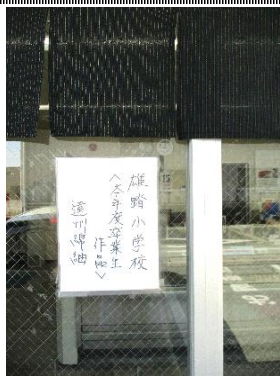 雄踏小学校
<今年度卒業生
作品>
遠州綿紬